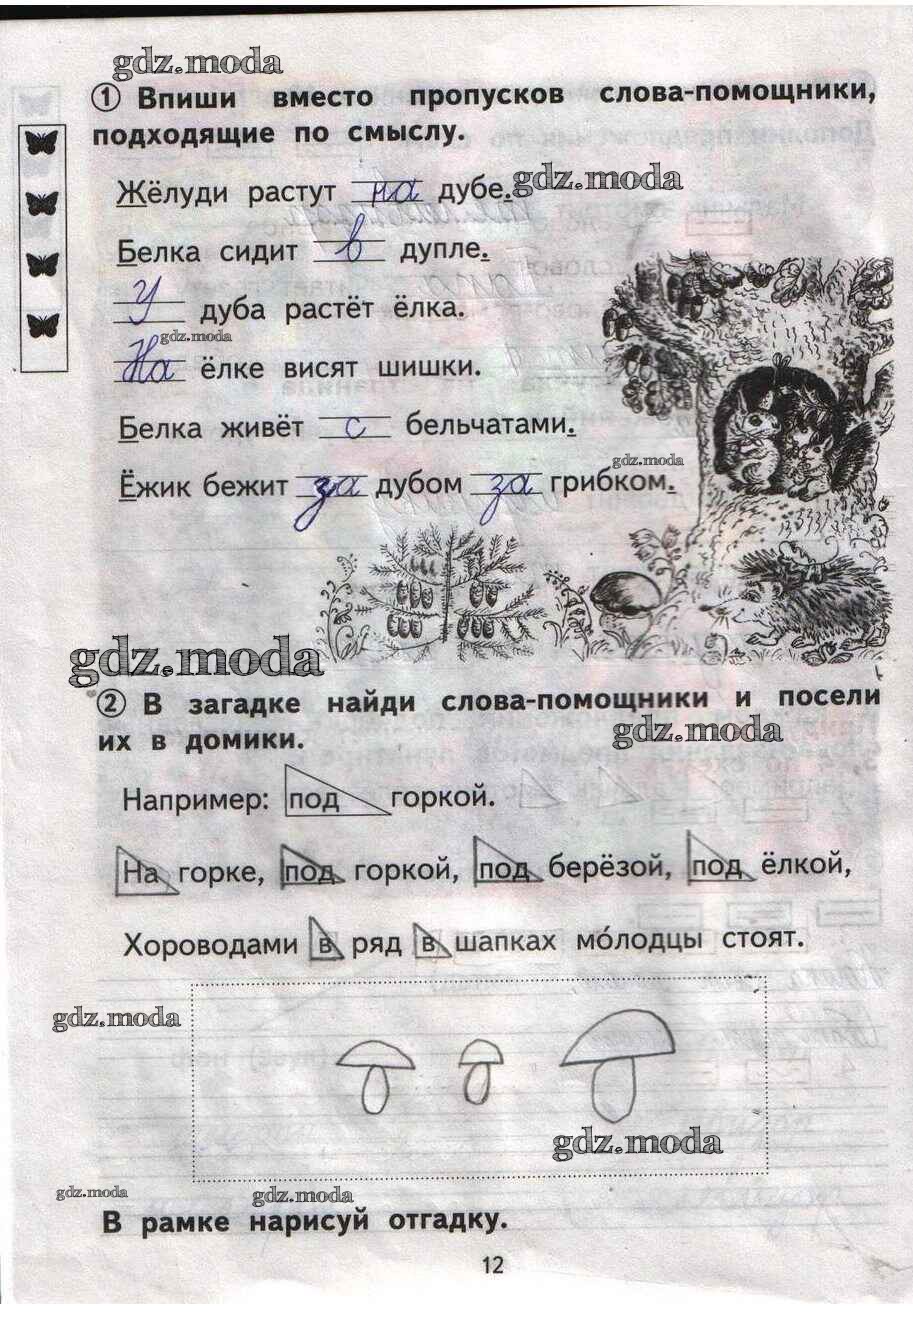 gdz.moda
1 Впиши вместо пропусков слова-помощники,
подходящие по смыслу.
Жёлуди растут на дубе. gdz.moda
Белка сидит в дупле.
У дуба растёт ёлка.
gdz.moda
На ёлке висят шишки.
Белка живёт с бельчатами.
gdz.moda
Ёжик бежит за дубом за грибком.
gdz.moda
2 В загадке найди слова-помощники и посели
gdz.moda
их в домики.
Например: под горкой.
На горке, под горкой, под берёзой, под ёлкой,
Хороводами в ряд в шапках мо́лодцы стоят.
gdz.moda
gdz.moda
gdz.moda gdz.moda
В рамке нарисуй отгадку.
12